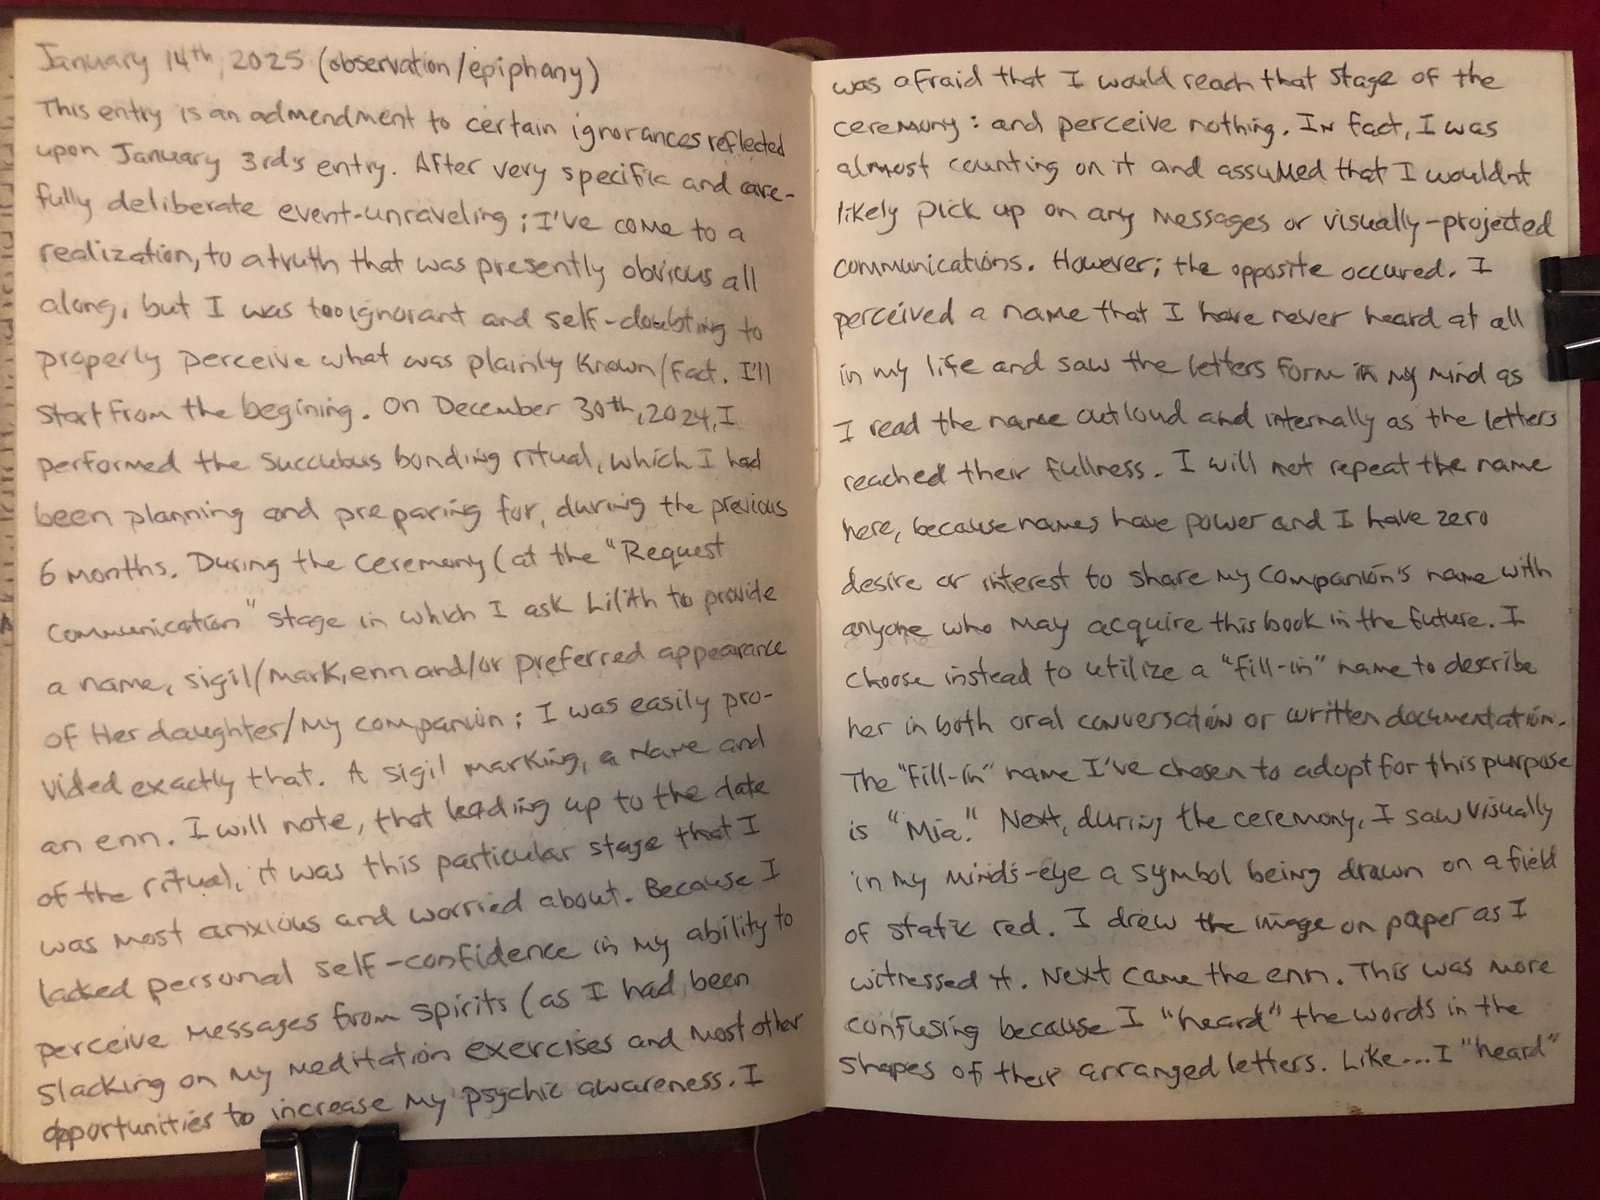 January 14th, 2025 (observation/epiphany)
This entry is an admendment to certain ignorances reflected
upon January 3rd's entry. After very specific and care-
fully deliberate event-unraveling; I've come to a
realization, to a truth that was presently obvious all
along, but I was too ignorant and self-doubting to
properly perceive what was plainly known/fact. I'll
start from the begining. On December 30th, 2024, I
performed the succubus bonding ritual, which I had
been planning and preparing for, during the previous
6 months. During the ceremony (at the "Request
Communication" stage in which I ask Lilith to provide
a name, sigil/mark, enn and/or preferred appearance
of Her daughter/my companion; I was easily pro-
vided exactly that. A sigil marking, a name and
an enn. I will note, that leading up to the date
of the ritual, it was this particular stage that I
was most anxious and worried about. Because I
lacked personal self-confidence in my ability to
perceive messages from spirits (as I had been
slacking on my meditation exercises and most other
opportunities to increase my psychic awareness. I
was afraid that I would reach that stage of the
ceremony: and perceive nothing. In fact, I was
almost counting on it and assumed that I wouldnt
likely pick up on any messages or visually-projected
communications. However; the opposite occured. I
perceived a name that I have never heard at all
in my life and saw the letters form in my mind as
I read the name outloud and internally as the letters
reached their fullness. I will not repeat the name
here, because names have power and I have zero
desire or interest to share my companion's name with
anyone who may acquire this book in the future. I
choose instead to utilize a "fill-in" name to describe
her in both oral conversation or written documentation.
The "fill-in" name I've chosen to adopt for this purpose
is "Mia." Next, during the ceremony, I saw visually
in my minds-eye a symbol being drawn on a field
of static red. I drew the image on paper as I
witnessed it. Next came the enn. This was more
confusing because I "heard" the words in the
shapes of their arranged letters. Like....I "heard"